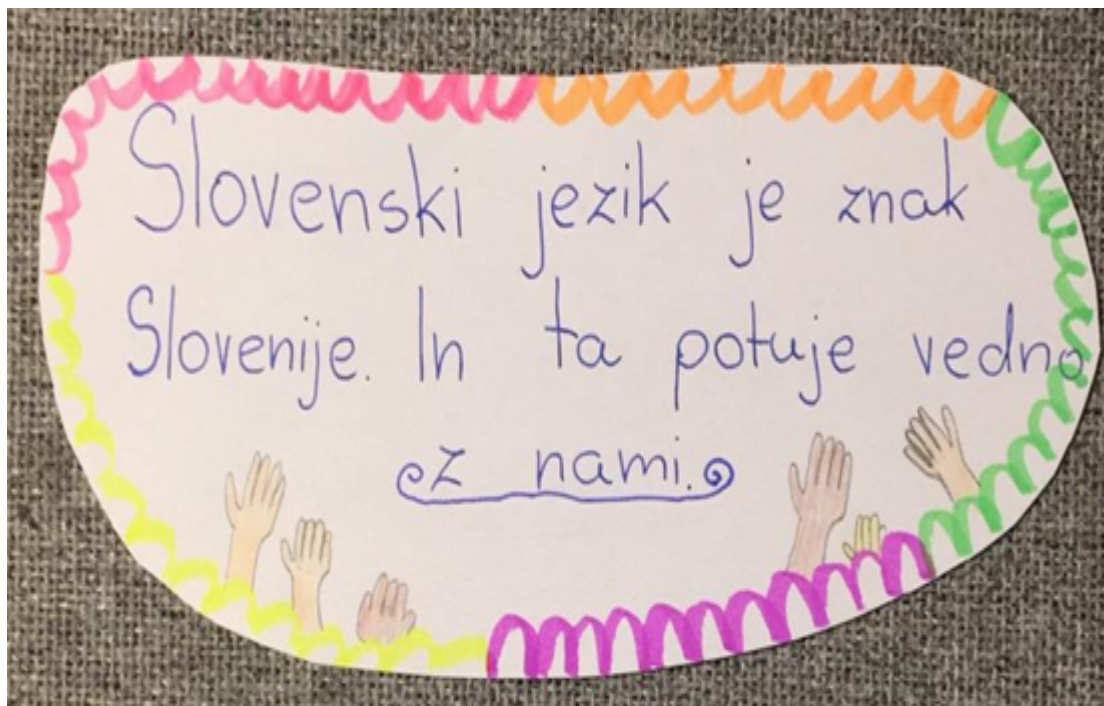 Slovenski jezik je znak
Slovenije. In ta potuje vedno
z nami.